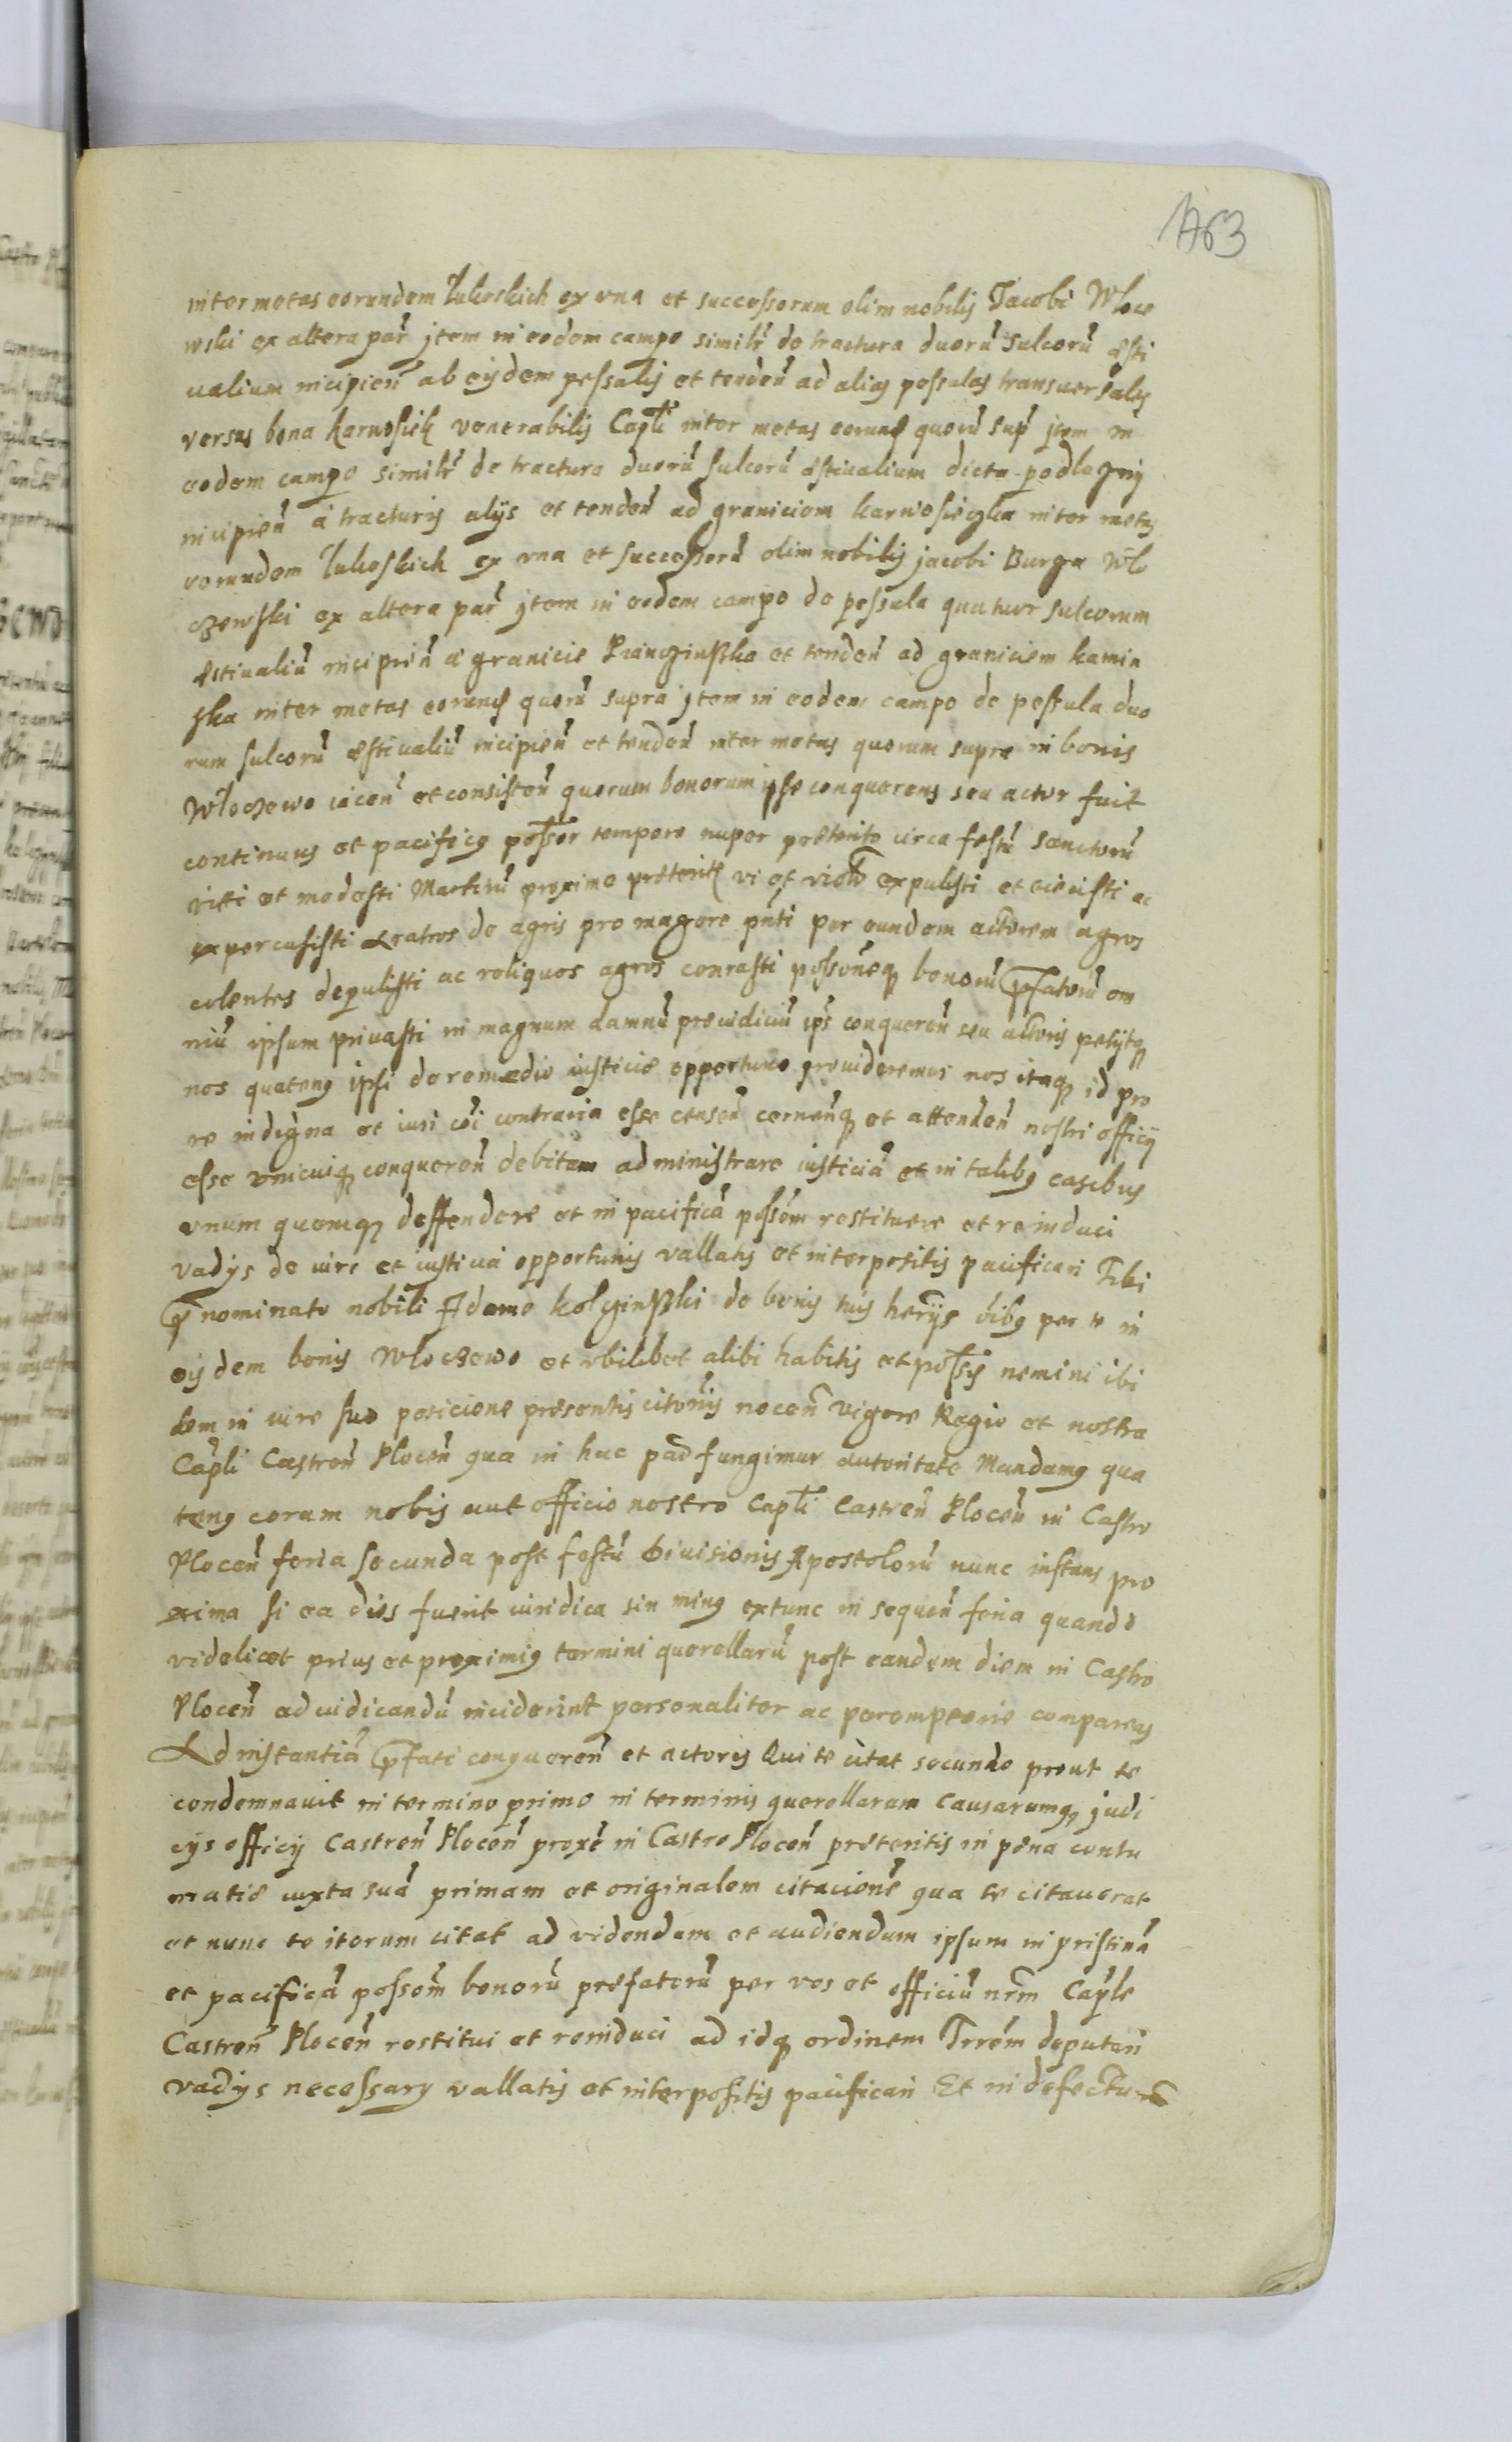 463
inter metas eorundem Lukoskich ex vna et successorum olim nobilis Jacobi Wlocz
wski ex altera par̃ jtem in eodem campo similr̃ de tractura duorũ sulcorũ ęsti
ualium incipień ab eisdem pessulis et tendeñ ad alias pessulas transuersales
versus bona karwosieki venerabilis Capli inter metas eorund quorũ sup jtem in
eodem campo similr̃ de tractura duorũ sulcorũ ęstiualium dicta podlezny
incipień á tracturis alijs et tendeñ ad graniciem karwosieczka inter metas
eorundem lukoskich ex vna et successorũ olim nobilis jacobi Burza Wlo
czewski ex altera par̃ jtem in eodem campo de pessula quatuor sulcorum
ęstiualiũ incipień a granicie et tendeñ ad graniciem kamin
ska inter metas eorund quorũ supra jtem in eodem campo de pessula duo
rum sulcorũ ęstiualiũ incipień et tendeñ inter metas quorum supra in bonis
Wloczewo iaceñ et consisteñ quorum bonorum ipse conquerens seu actor fuit
continuus et pacificus possor tempore nuper preterito circa festũ sanctorũ
vitti et modesti Martirũ proxime preterit vi et violr̃ expulisti et eiecisti ac
expercussisti aratros de agris pro maiore pñti per eundem actorem agros
colentes depulisti ac reliquos agros conrasti possoneq bonorũ pfatorũ om
niũ ipsum priuasti in magnum damnũ preiudiciũ ips conquereñ seu actoris petijtq
nos quatenus ipsi de remedio iusticie opportuno prouideremus nos itaq id pro
re indigna et iuri coi contraria esse censeñ cerneñq et attendeñ nostri officij
esse vnicuiq conquereñ debitam administrare iusticiã et in talibus casibus
vnum quemq deffendere et in pacificã possom restituere et reinduci
vadijs de iure et iusticia opportunis vallatis et interpositis pacificari Tibi
p nominato nobili Adamo de bonis tuis herijs oibus per te in
eisdem bonis Wloczewo et vbilibet alibi habitis et possis nemini ibi
dem in iure suo posicione presentis citonis noceñ vigore Regio et nostra
Capli Castreñ Ploceñ qua in hac par fungimur autoritate Mandamus qua
tenus coram nobis aut officio nostro Capli Castreñ Ploceñ in Castro
Ploceñ feria secunda post festũ diuisionis Apostolorũ nunc instans pro
xima si ea dies fuerit iuridica sin minus extunc in sequeñ feria quando
videlicet prius et proximius termini querellarũ post eandem diem in Castro
Ploceñ ad iudicandũ inciderint personaliter ac peremptorie compareas
Ad instantiã pfati conquereñ et actoris Qui te citat secundo prout te
condemnauit in termino primo in terminis querellarum causarumq judi
cijs officij Castreñ Ploceñ proxe in Castro Ploceñ preteritis in pęna contu
matie iuxta suã primam et originalem citacionẽ qua te citauerat
et nunc te iterum citat ad videndum et audiendum ipsum in pristinã
et pacificã possom bonorũ prefatorũ per vos et officiũ nrm Caple
Castreñ Ploceñ restitui et reinduci ad idq ordinem Trrem deputari
vadijs necessarijs vallatis et interpositis pacificari Et in defectu